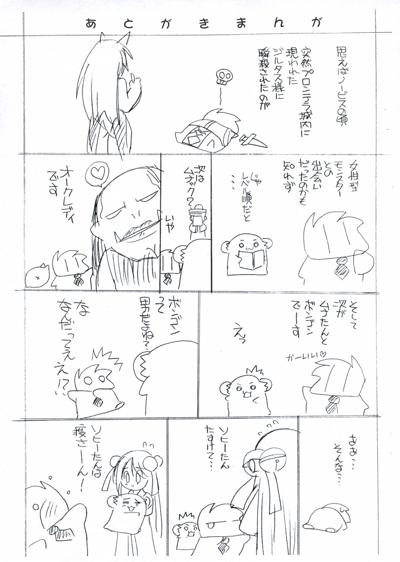 あとがきまんが
思えばノービスの頃
突然プロンテラ城内に
現われた
ジルタス様に
瞬殺されたのが
女性型
モンスター
との
出会い
だったのかも
知れず
じゃ
レベル順だと
……
次は
ムナック？
いや
オークレディ
です
そして
次が
ムナたんと
ボンゴン
でーす
かーいい♡
えっ
ボンゴン
って
男だよね？
な
なんだってぇ
え！？
ああ…
そんな…
ソヒーたん
たすけて…
ソヒーたんは
殺さーん！